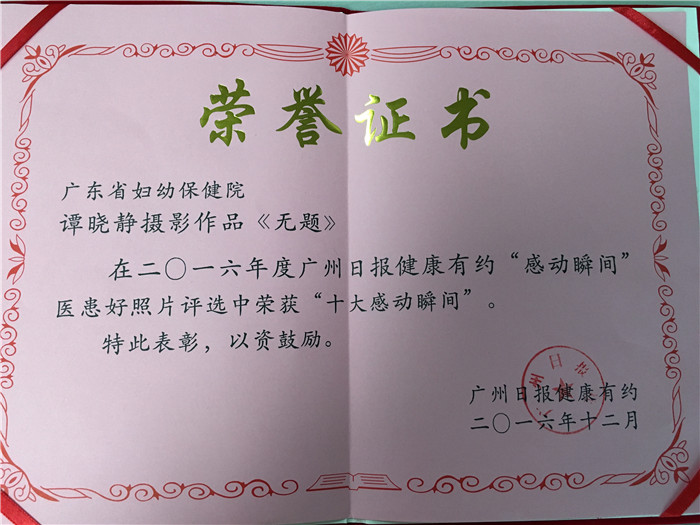 荣誉证书
广东省妇幼保健院
谭晓静摄影作品《无题》
在二〇一六年度广州日报健康有约“感动瞬间”
医患好照片评选中荣获“十大感动瞬间”。
特此表彰，以资鼓励。
广州日报
广州日报健康有约
二〇一六年十二月